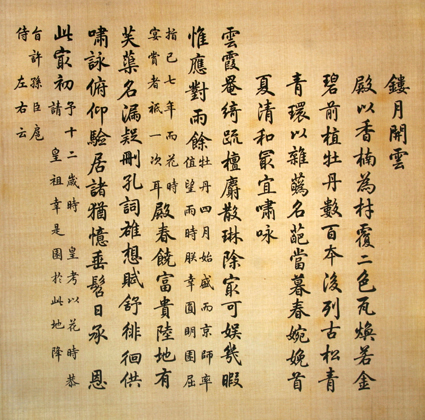 鏤月開雲
殿以香楠為材覆二色瓦煥若金
碧前植牡丹數百本後列古松青
青環以雜蘤名葩當暮春婉娩首
夏清和最宜嘯詠
雲霞罨綺疏檀麝散琳除最可娛幾暇
惟應對雨餘牡丹四月始盛而京師率值望雨時朕幸圓明園屈
指已七年而花時宴賞者祇一次耳殿春饒富貴陸地有
芙蕖名漏疑刪孔詞雄想賦舒徘徊供
嘯詠俯仰驗居諸猶憶垂髫日承 恩
此最初予十二歲時 皇考以花時恭請 皇祖幸是園於此地降
旨許孫臣扈侍左右云